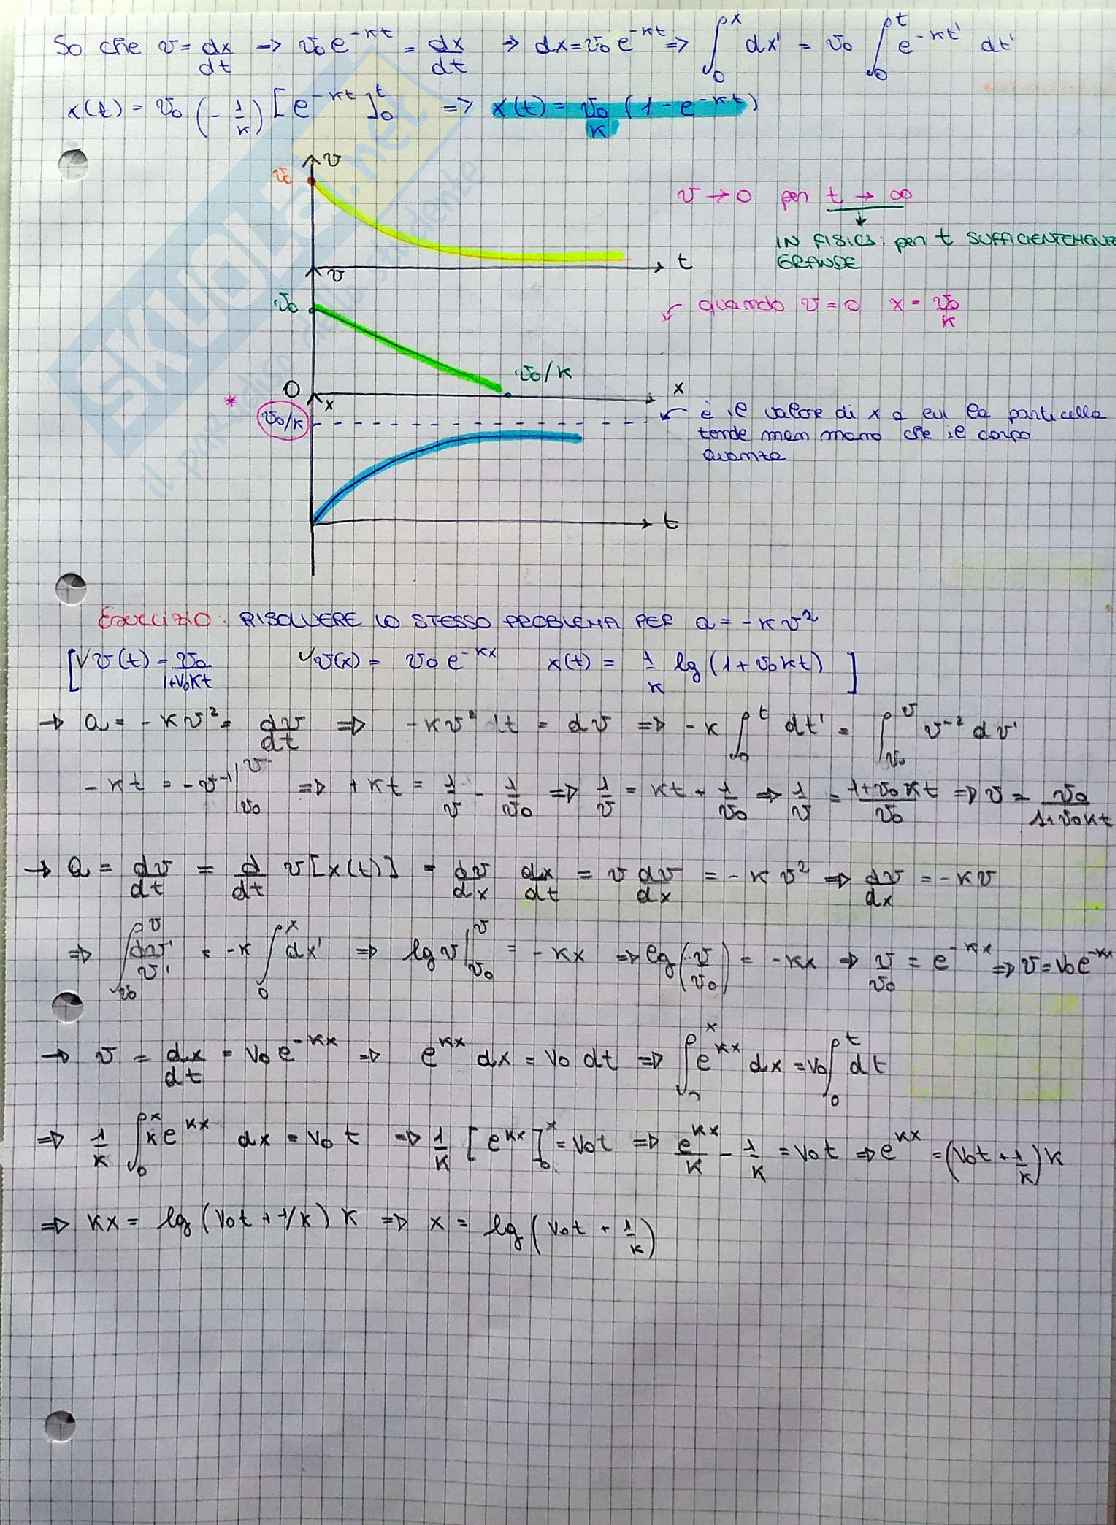 So che v = dx/dt → v₀e^{-kt} = dx/dt ⇒ dx = v₀e^{-kt} ⇒ ∫₀ˣ dx' = v₀ ∫₀ᵗ e^{-kt'} dt'
x(t) = v₀ (-1/k) [e^{-kt}]₀ᵗ ⇒ x(t) = v₀/k (1 - e^{-kt})
v
v₀
v → 0 per t → ∞
IN FISICA: per t SUFFICIENTEMENTE
GRANDE
t
v
v₀
quando v = 0 x = v₀/k
v₀/k
0
x
* v₀/k
x
è il valore di x a cui la particella
tende man mano che il corpo
avanza
t
Esercizio: RISOLVERE LO STESSO PROBLEMA PER a = -kv²
[√v(t) = v₀/1+v₀kt √v(x) = v₀e^{-kx} x(t) = 1/k lg(1+v₀kt)]
→ a = -kv² = dv/dt ⇒ -kv² dt = dv ⇒ -k ∫₀ᵗ dt' = ∫_{v₀}^{v} v⁻² dv'
-kt = -v⁻¹|_{v₀}^{v} ⇒ +kt = 1/v - 1/v₀ ⇒ 1/v = kt + 1/v₀ ⇒ 1/v = 1+v₀kt/v₀ ⇒ v = v₀/1+v₀kt
→ a = dv/dt = d/dt v[x(t)] = dv/dx dx/dt = v dv/dx = -kv² ⇒ dv/dx = -kv
⇒ ∫_{v₀}^{v} dv'/v' = -k ∫₀ˣ dx' ⇒ lg v|_{v₀}^{v} = -kx ⇒ lg(v/v₀) = -kx ⇒ v/v₀ = e^{-kx} ⇒ v = v₀e^{-kx}
→ v = dx/dt = v₀e^{-kx} ⇒ e^{kx} dx = v₀ dt ⇒ ∫₀ˣ e^{kx} dx = v₀ ∫₀ᵗ dt
⇒ 1/k ∫₀ˣ ke^{kx} dx = v₀t ⇒ 1/k [e^{kx}]₀ˣ = v₀t ⇒ e^{kx}/k - 1/k = v₀t ⇒ e^{kx} = (v₀t + 1/k)k
⇒ kx = lg(v₀t + 1/k) k ⇒ x = lg(v₀t + 1/k)
SKUOLA.net